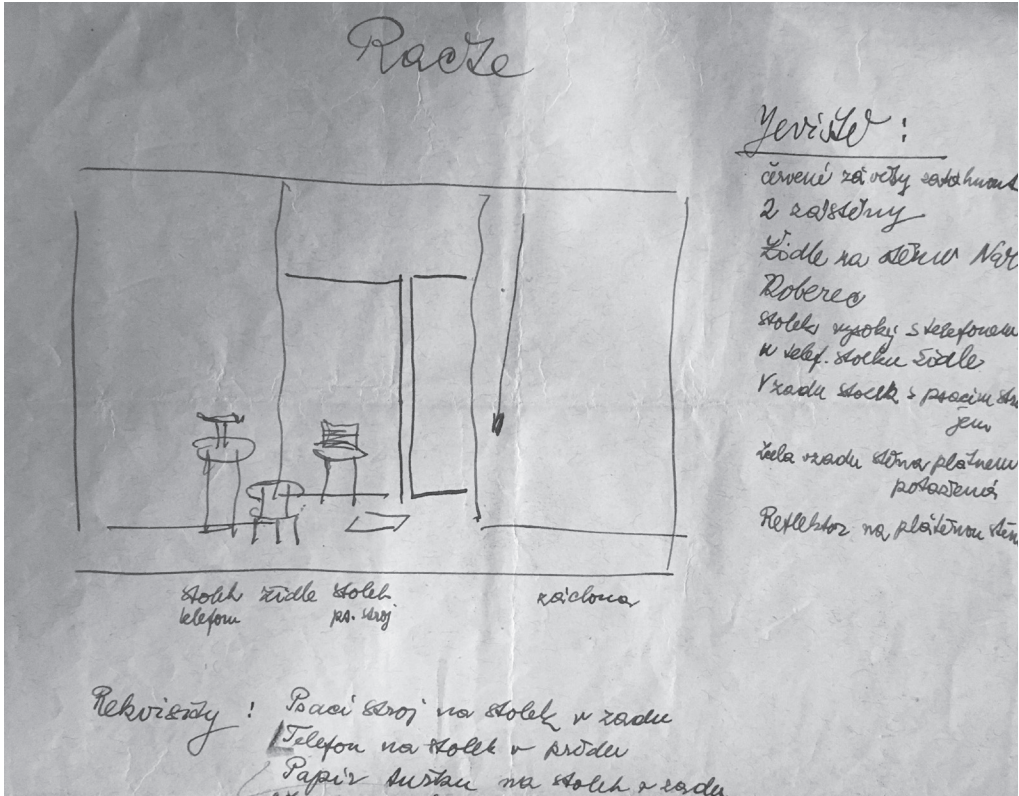 Jeviště :
červené závěsy zatáhnout
2 zástěny
Židle na stěnu
Koberec
stolek vysoký s telefonem
u telef. stolku židle
Vzadu stolek s psacím
jem
vzadu stěna plátnem
potažená
Reflektor na plátěnou
stolek židle stolek
telefon ps. stroj
záclona
Rekvisity : Psací stroj na stolek v zadu
Telefon na stolek v předu
Papír tužku na stolek v zadu